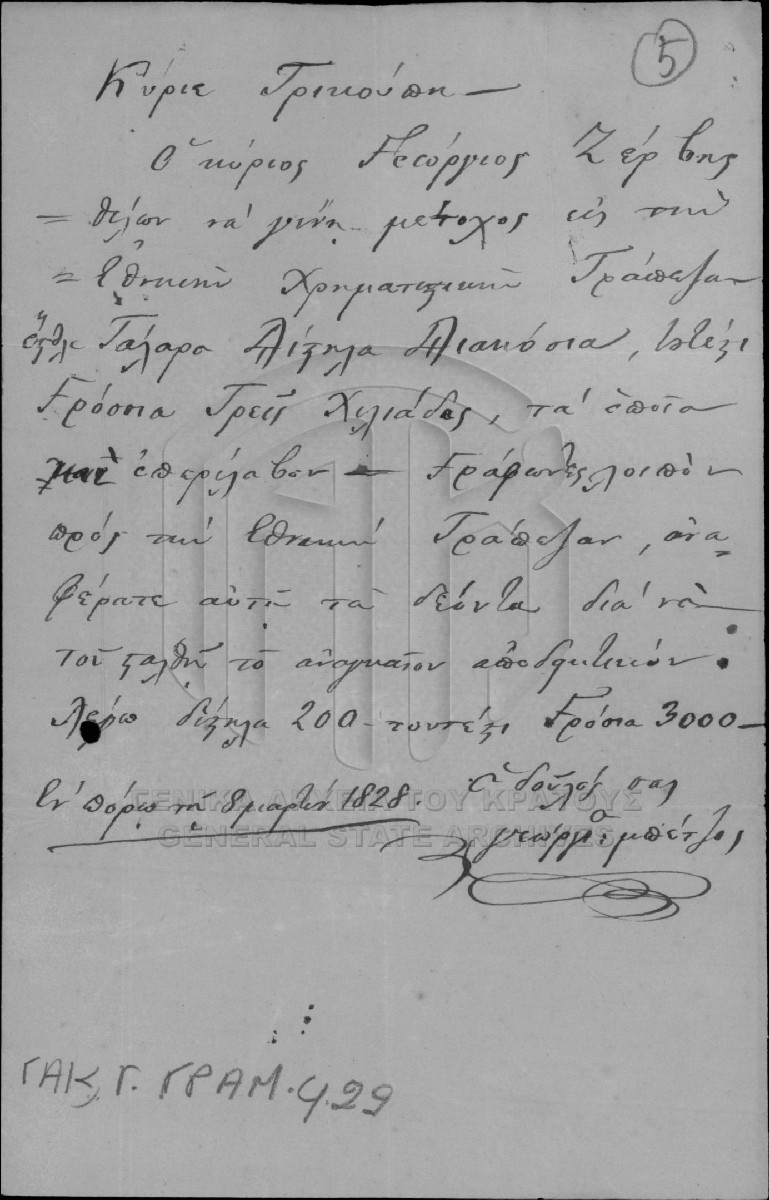 5
Κύριε Τρικούπη —
Ὁ κύριος Γεώργιος Ζέρβης
= θέλων νὰ γίνῃ μέτοχος εἰς τὴν
= Ἐθνικὴν Χρηματιστικὴν Τράπεζαν
Τάλαρα Δίστηλα Διακόσια,
Γρόσια Τρεῖς Χιλιάδες, τὰ ὁποῖα
καὶ ἐπερίλαβεν — Γράφωντες λοιπὸν
πρὸς τὴν Ἐθνικὴν Τράπεζαν, ἀνα=
φέρατε αὐτῇ τὰ δέοντα διὰ νὰ
τοῦ σταλθῇ τὸ ἀναγκαῖον ἀποδεικτικόν.
Λέγω δίστηλα 200 – τουτέστι Γρόσια 3000 –
Ἐν Πόρῳ τῇ 8 μαρτίου 1828.
Ὁ δοῦλός σας
γεώργιος μπέτζος
ΓΕΝΙΚΑ ΑΡΧΕΙΑ ΤΟΥ ΚΡΑΤΟΥΣ
GENERAL STATE ARCHIVES
ΓΑΚ, Γ. ΓΡΑΜ. φ. 29